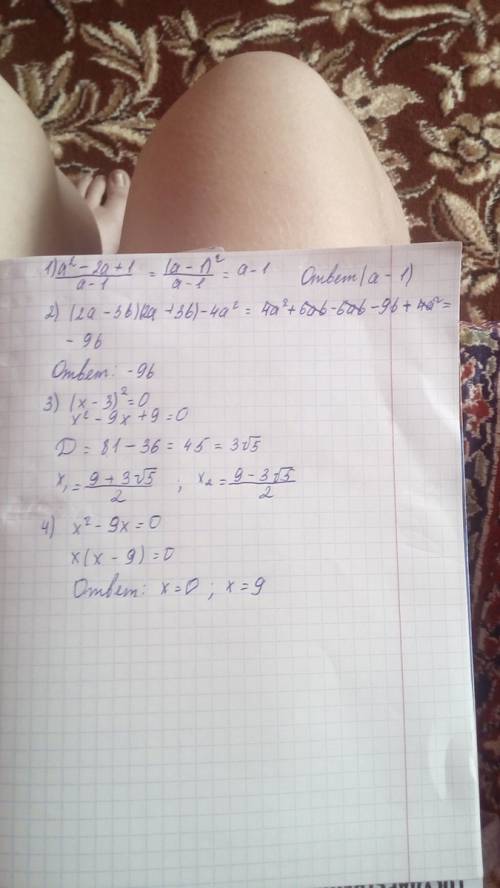 1) a² - 2a + 1 / a - 1 = (a - 1)² / a - 1 = a - 1 Ответ (a - 1)
2) (2a - 3b)(2a + 3b) - 4a² = 4a² + 6ab - 6ab - 9b + 4a² =
- 9b
Ответ: -9b
3) (x - 3)² = 0
x² - 9x + 9 = 0
D = 81 - 36 = 45 = 3√5
x₁ = 9 + 3√5 / 2 ; x₂ = 9 - 3√5 / 2
4) x² - 9x = 0
x(x - 9) = 0
Ответ: x = 0 ; x = 9